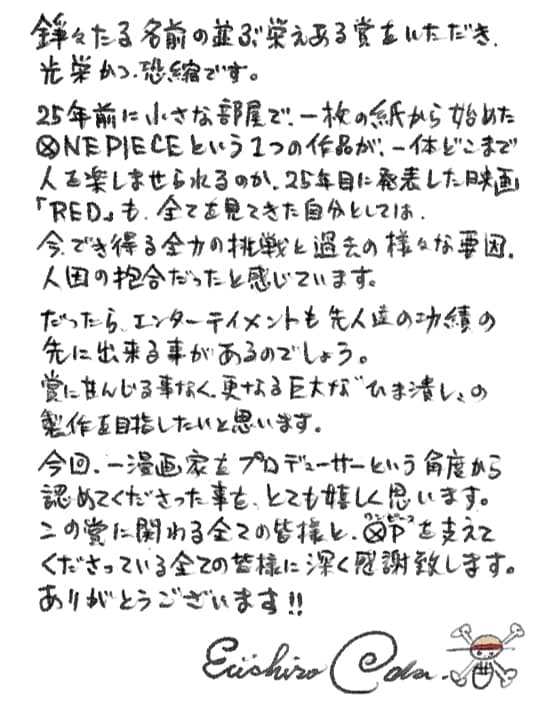 錚々たる名前の並ぶ栄えある賞をいただき、
光栄かつ、恐縮です。
25年前に小さな部屋で、一枚の紙から始めた
ONE PIECEという1つの作品が、一体どこまで
人を楽しませられるのか、25年目に発表した映画
『RED』も、全てを見てきた自分としては、
今、でき得る全力の挑戦と過去の様々な要因、
人因の抱合だったと感じています。
だったら、エンターテイメントも先人達の功績の
先に出来る事があるのでしょう。
賞に甘んじる事なく、更なる巨大な〝ひま潰し〟の
製作を目指したいと思います。
今回、一漫画家をプロデューサーという角度から
認めてくださった事を、とても嬉しく思います。
この賞に関わる全ての皆様と、OPを支えて
ワンピース
くださっている全ての皆様に深く感謝致します。
ありがとうございます!!
Eiichiro Oda.